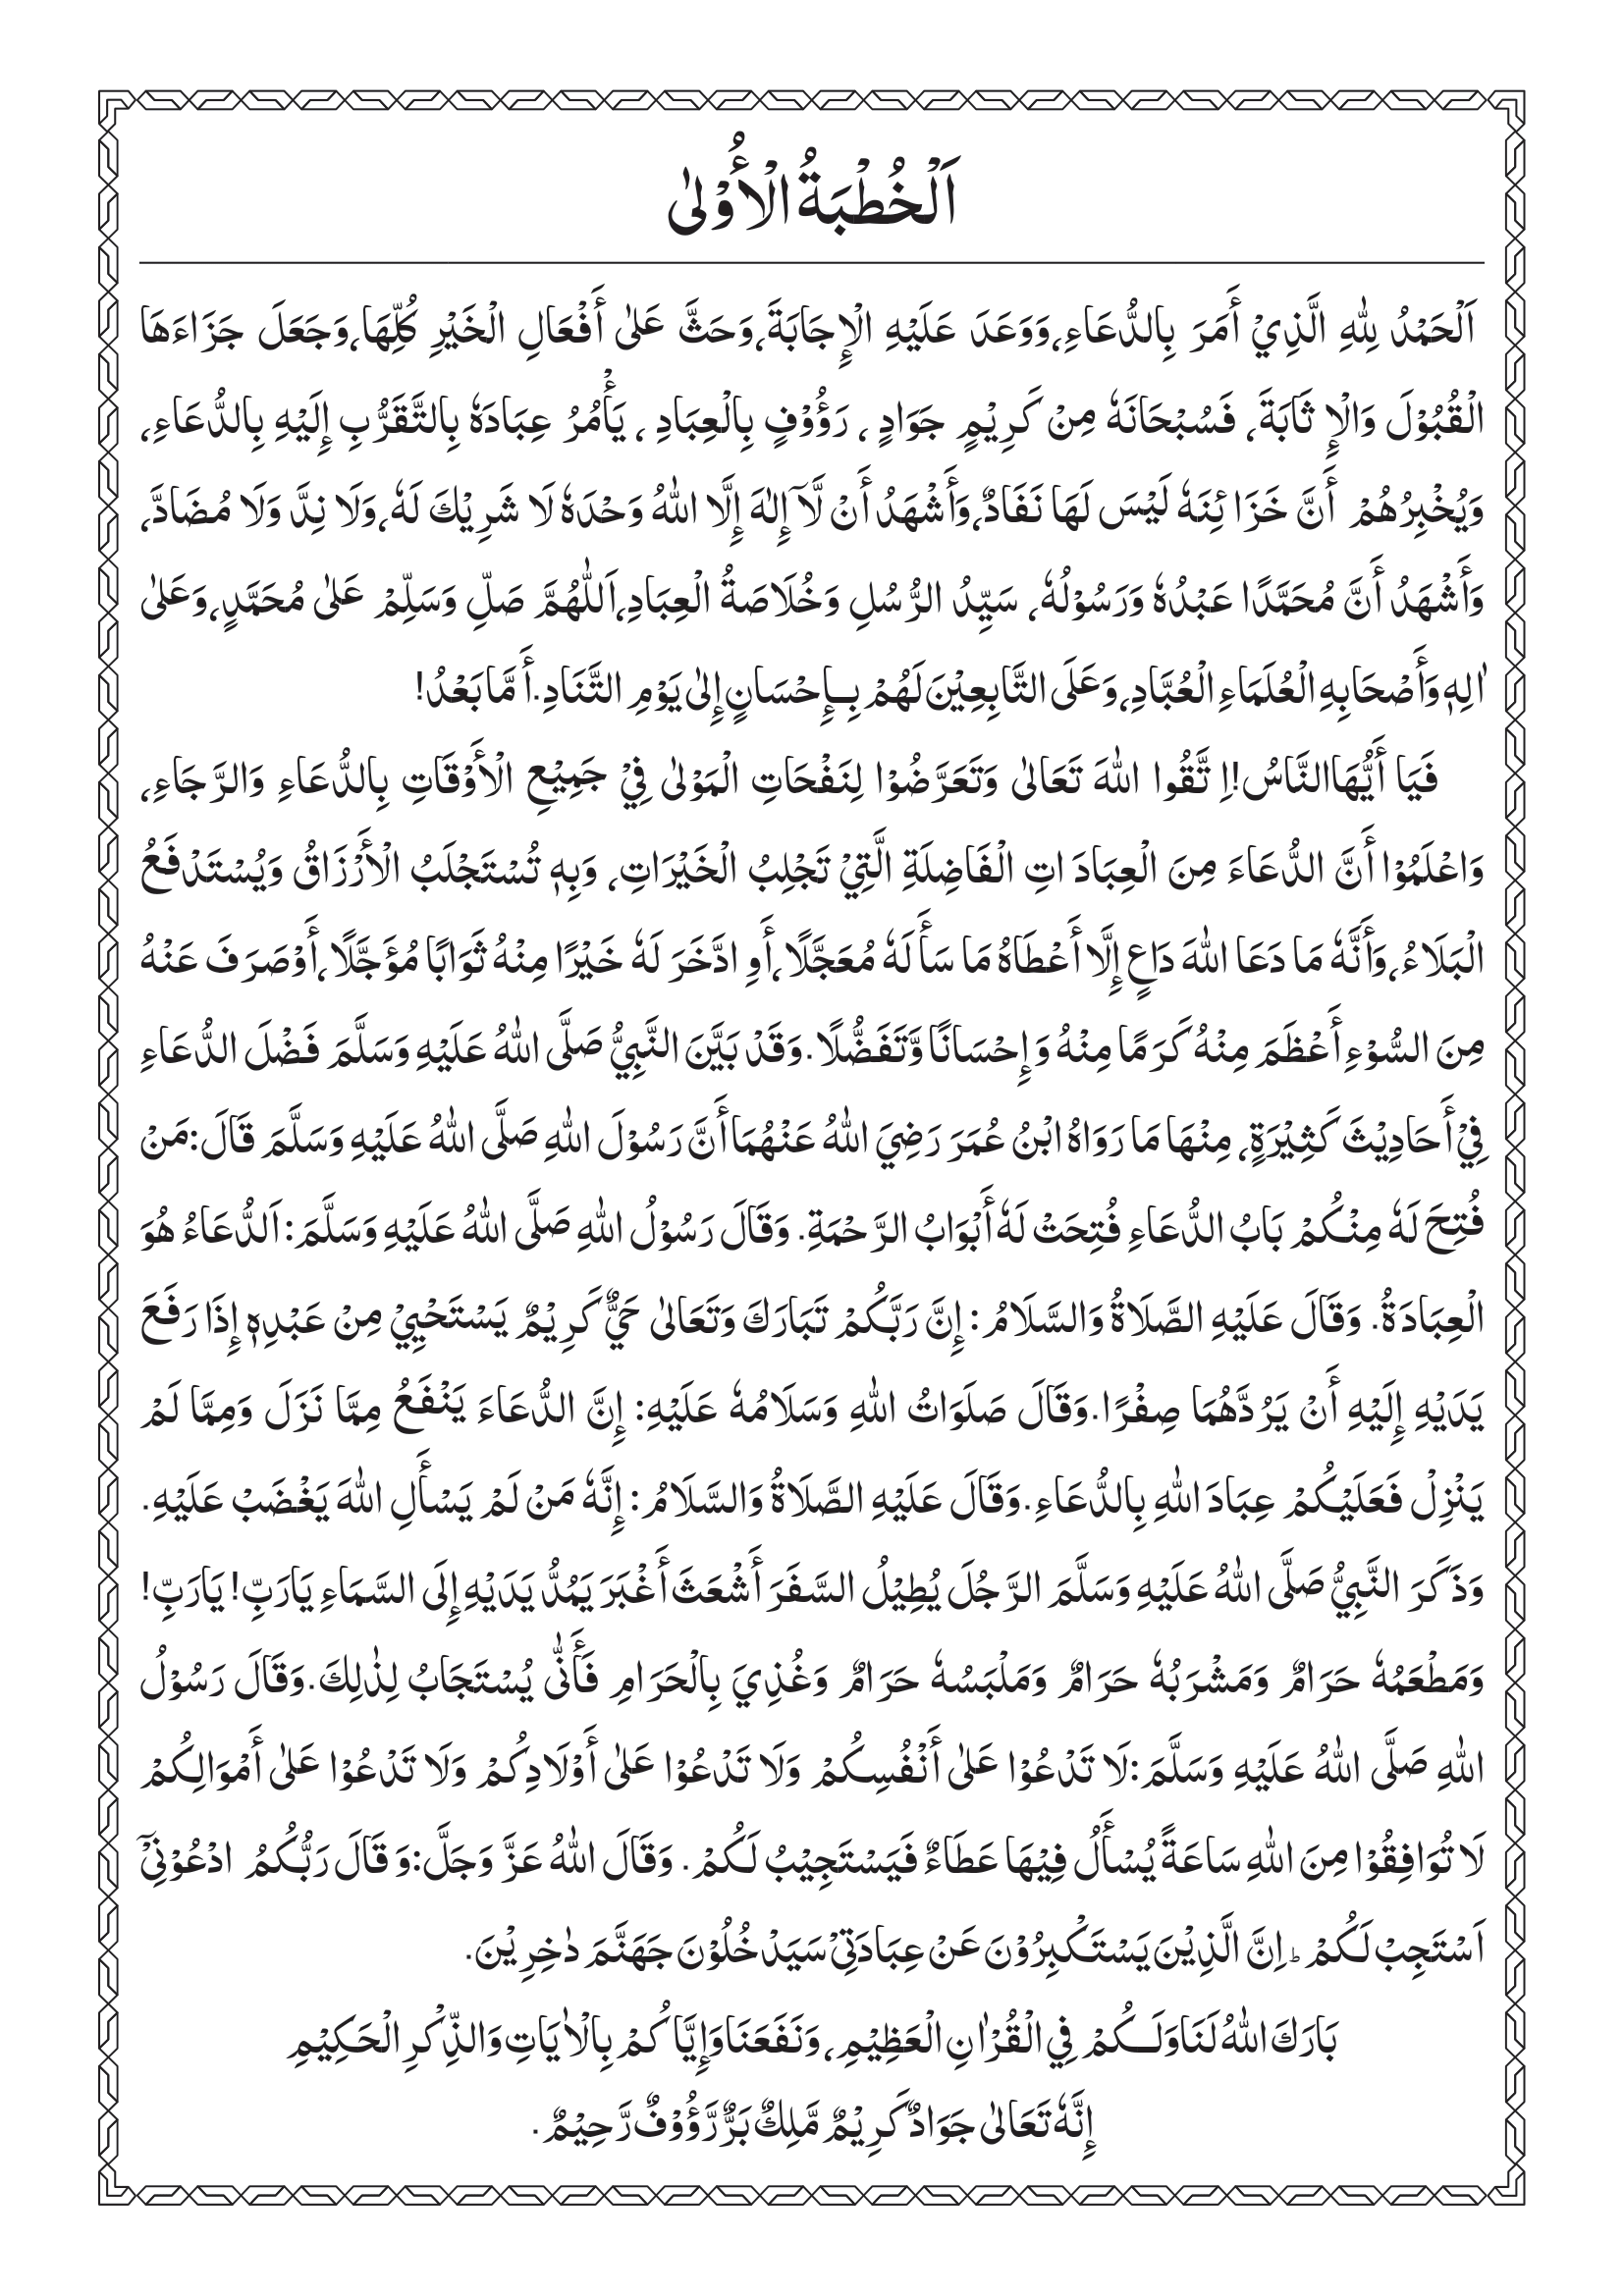 اَلْخُطْبَةُ الْأُوْلىٰ
اَلْحَمْدُ لِلّٰهِ الَّذِيْ أَمَرَ بِالدُّعَاءِ، وَوَعَدَ عَلَيْهِ الْإِجَابَةَ، وَحَثَّ عَلىٰ أَفْعَالِ الْخَيْرِ كُلِّهَا، وَجَعَلَ جَزَاءَهَا
الْقُبُوْلَ وَالْإِثَابَةَ، فَسُبْحَانَهٗ مِنْ كَرِيْمٍ جَوَادٍ، رَؤُوْفٍ بِالْعِبَادِ، يَأْمُرُ عِبَادَهٗ بِالتَّقَرُّبِ إِلَيْهِ بِالدُّعَاءِ،
وَيُخْبِرُهُمْ أَنَّ خَزَائِنَهٗ لَيْسَ لَهَا نَفَادٌ، وَأَشْهَدُ أَنْ لَّآ إِلٰهَ إِلَّا اللّٰهُ وَحْدَهٗ لَا شَرِيْكَ لَهٗ، وَلَا نِدَّ وَلَا مُضَادَّ،
وَأَشْهَدُ أَنَّ مُحَمَّدًا عَبْدُهٗ وَرَسُوْلُهٗ، سَيِّدُ الرُّسُلِ وَخُلَاصَةُ الْعِبَادِ، اَللّٰهُمَّ صَلِّ وَسَلِّمْ عَلىٰ مُحَمَّدٍ، وَعَلىٰ
اٰلِهٖ وَأَصْحَابِهِ الْعُلَمَاءِ الْعُبَّادِ، وَعَلَى التَّابِعِيْنَ لَهُمْ بِإِحْسَانٍ إِلىٰ يَوْمِ التَّنَادِ. أَمَّا بَعْدُ!
فَيَا أَيُّهَا النَّاسُ! اِتَّقُوا اللّٰهَ تَعَالىٰ وَتَعَرَّضُوْا لِنَفْحَاتِ الْمَوْلىٰ فِيْ جَمِيْعِ الْأَوْقَاتِ بِالدُّعَاءِ وَالرَّجَاءِ،
وَاعْلَمُوْا أَنَّ الدُّعَاءَ مِنَ الْعِبَادَاتِ الْفَاضِلَةِ الَّتِيْ تَجْلِبُ الْخَيْرَاتِ، وَبِهٖ تُسْتَجْلَبُ الْأَرْزَاقُ وَيُسْتَدْفَعُ
الْبَلَاءُ، وَأَنَّهٗ مَا دَعَا اللّٰهَ دَاعٍ إِلَّا أَعْطَاهُ مَا سَأَلَهٗ مُعَجَّلًا، أَوِ ادَّخَرَ لَهٗ خَيْرًا مِنْهُ ثَوَابًا مُؤَجَّلًا، أَوْ صَرَفَ عَنْهُ
مِنَ السُّوْءِ أَعْظَمَ مِنْهُ كَرَمًا مِنْهُ وَإِحْسَانًا وَّتَفَضُّلًا. وَقَدْ بَيَّنَ النَّبِيُّ صَلَّى اللّٰهُ عَلَيْهِ وَسَلَّمَ فَضْلَ الدُّعَاءِ
فِيْ أَحَادِيْثَ كَثِيْرَةٍ، مِنْهَا مَا رَوَاهُ ابْنُ عُمَرَ رَضِيَ اللّٰهُ عَنْهُمَا أَنَّ رَسُوْلَ اللّٰهِ صَلَّى اللّٰهُ عَلَيْهِ وَسَلَّمَ قَالَ: مَنْ
فُتِحَ لَهٗ مِنْكُمْ بَابُ الدُّعَاءِ فُتِحَتْ لَهٗ أَبْوَابُ الرَّحْمَةِ. وَقَالَ رَسُوْلُ اللّٰهِ صَلَّى اللّٰهُ عَلَيْهِ وَسَلَّمَ: اَلدُّعَاءُ هُوَ
الْعِبَادَةُ. وَقَالَ عَلَيْهِ الصَّلَاةُ وَالسَّلَامُ: إِنَّ رَبَّكُمْ تَبَارَكَ وَتَعَالىٰ حَيٌّ كَرِيْمٌ يَسْتَحْيِيْ مِنْ عَبْدِهٖ إِذَا رَفَعَ
يَدَيْهِ إِلَيْهِ أَنْ يَرُدَّهُمَا صِفْرًا. وَقَالَ صَلَوَاتُ اللّٰهِ وَسَلَامُهٗ عَلَيْهِ: إِنَّ الدُّعَاءَ يَنْفَعُ مِمَّا نَزَلَ وَمِمَّا لَمْ
يَنْزِلْ فَعَلَيْكُمْ عِبَادَ اللّٰهِ بِالدُّعَاءِ. وَقَالَ عَلَيْهِ الصَّلَاةُ وَالسَّلَامُ: إِنَّهٗ مَنْ لَمْ يَسْأَلِ اللّٰهَ يَغْضَبْ عَلَيْهِ.
وَذَكَرَ النَّبِيُّ صَلَّى اللّٰهُ عَلَيْهِ وَسَلَّمَ الرَّجُلَ يُطِيْلُ السَّفَرَ أَشْعَثَ أَغْبَرَ يَمُدُّ يَدَيْهِ إِلَى السَّمَاءِ يَارَبِّ! يَارَبِّ!
وَمَطْعَمُهٗ حَرَامٌ وَمَشْرَبُهٗ حَرَامٌ وَمَلْبَسُهٗ حَرَامٌ وَغُذِيَ بِالْحَرَامِ فَأَنّٰى يُسْتَجَابُ لِذٰلِكَ. وَقَالَ رَسُوْلُ
اللّٰهِ صَلَّى اللّٰهُ عَلَيْهِ وَسَلَّمَ: لَا تَدْعُوْا عَلىٰ أَنْفُسِكُمْ وَلَا تَدْعُوْا عَلىٰ أَوْلَادِكُمْ وَلَا تَدْعُوْا عَلىٰ أَمْوَالِكُمْ
لَا تُوَافِقُوْا مِنَ اللّٰهِ سَاعَةً يُسْأَلُ فِيْهَا عَطَاءٌ فَيَسْتَجِيْبُ لَكُمْ. وَقَالَ اللّٰهُ عَزَّ وَجَلَّ: وَقَالَ رَبُّكُمُ ادْعُوْنِيْٓ
اَسْتَجِبْ لَكُمْ ؕ اِنَّ الَّذِيْنَ يَسْتَكْبِرُوْنَ عَنْ عِبَادَتِيْ سَيَدْخُلُوْنَ جَهَنَّمَ دٰخِرِيْنَ.
بَارَكَ اللّٰهُ لَنَا وَلَكُمْ فِي الْقُرْاٰنِ الْعَظِيْمِ، وَنَفَعَنَا وَإِيَّاكُمْ بِالْاٰيَاتِ وَالذِّكْرِ الْحَكِيْمِ
إِنَّهٗ تَعَالىٰ جَوَادٌ كَرِيْمٌ مَّلِكٌ بَرٌّ رَّؤُوْفٌ رَّحِيْمٌ.